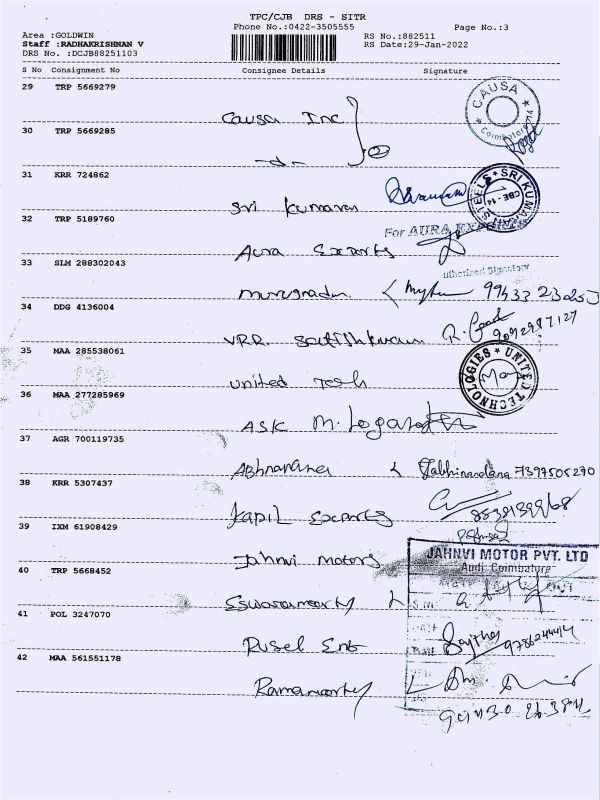 TPC/CJB DRS - SITR
Phone No.:0422-3505555
Page No.:3
Area :GOLDWIN
RS No.:882511
Staff :RADHAKRISHNAN V
RS Date:29-Jan-2022
DRS No. :DCJB88251103
S No Consignment No Consignee Details Signature
29 TRP 5669279
Causa Inc
CAUSA
Coimbatore
30 TRP 5669285
-do-
2
31 KRR 724862
Sri Kumaran
SRI KUMARAN STEELS
CBE - 14
32 TRP 5189760
Aura Exports
For AURA EXPORTS
Authorised Signatory
33 SLM 288302043
34 DDG 4136004
VRR Sathishkumar
9042987127
35 MAA 285538061
United Tech
UNITED TECHNOLOGIES
36 MAA 277285969
ASK
37 AGR 700119735
Abhinandana 7397505270
38 KRR 5307437
Kapil Exports
39 IXM 61908429
Jahnvi Motors
JAHNVI MOTOR PVT. LTD
Audi Coimbatore
40 TRP 5668452
Eswaramoorthy
41 POL 3247070
Rusel Ent
42 MAA 561551178
Ramamoorthy